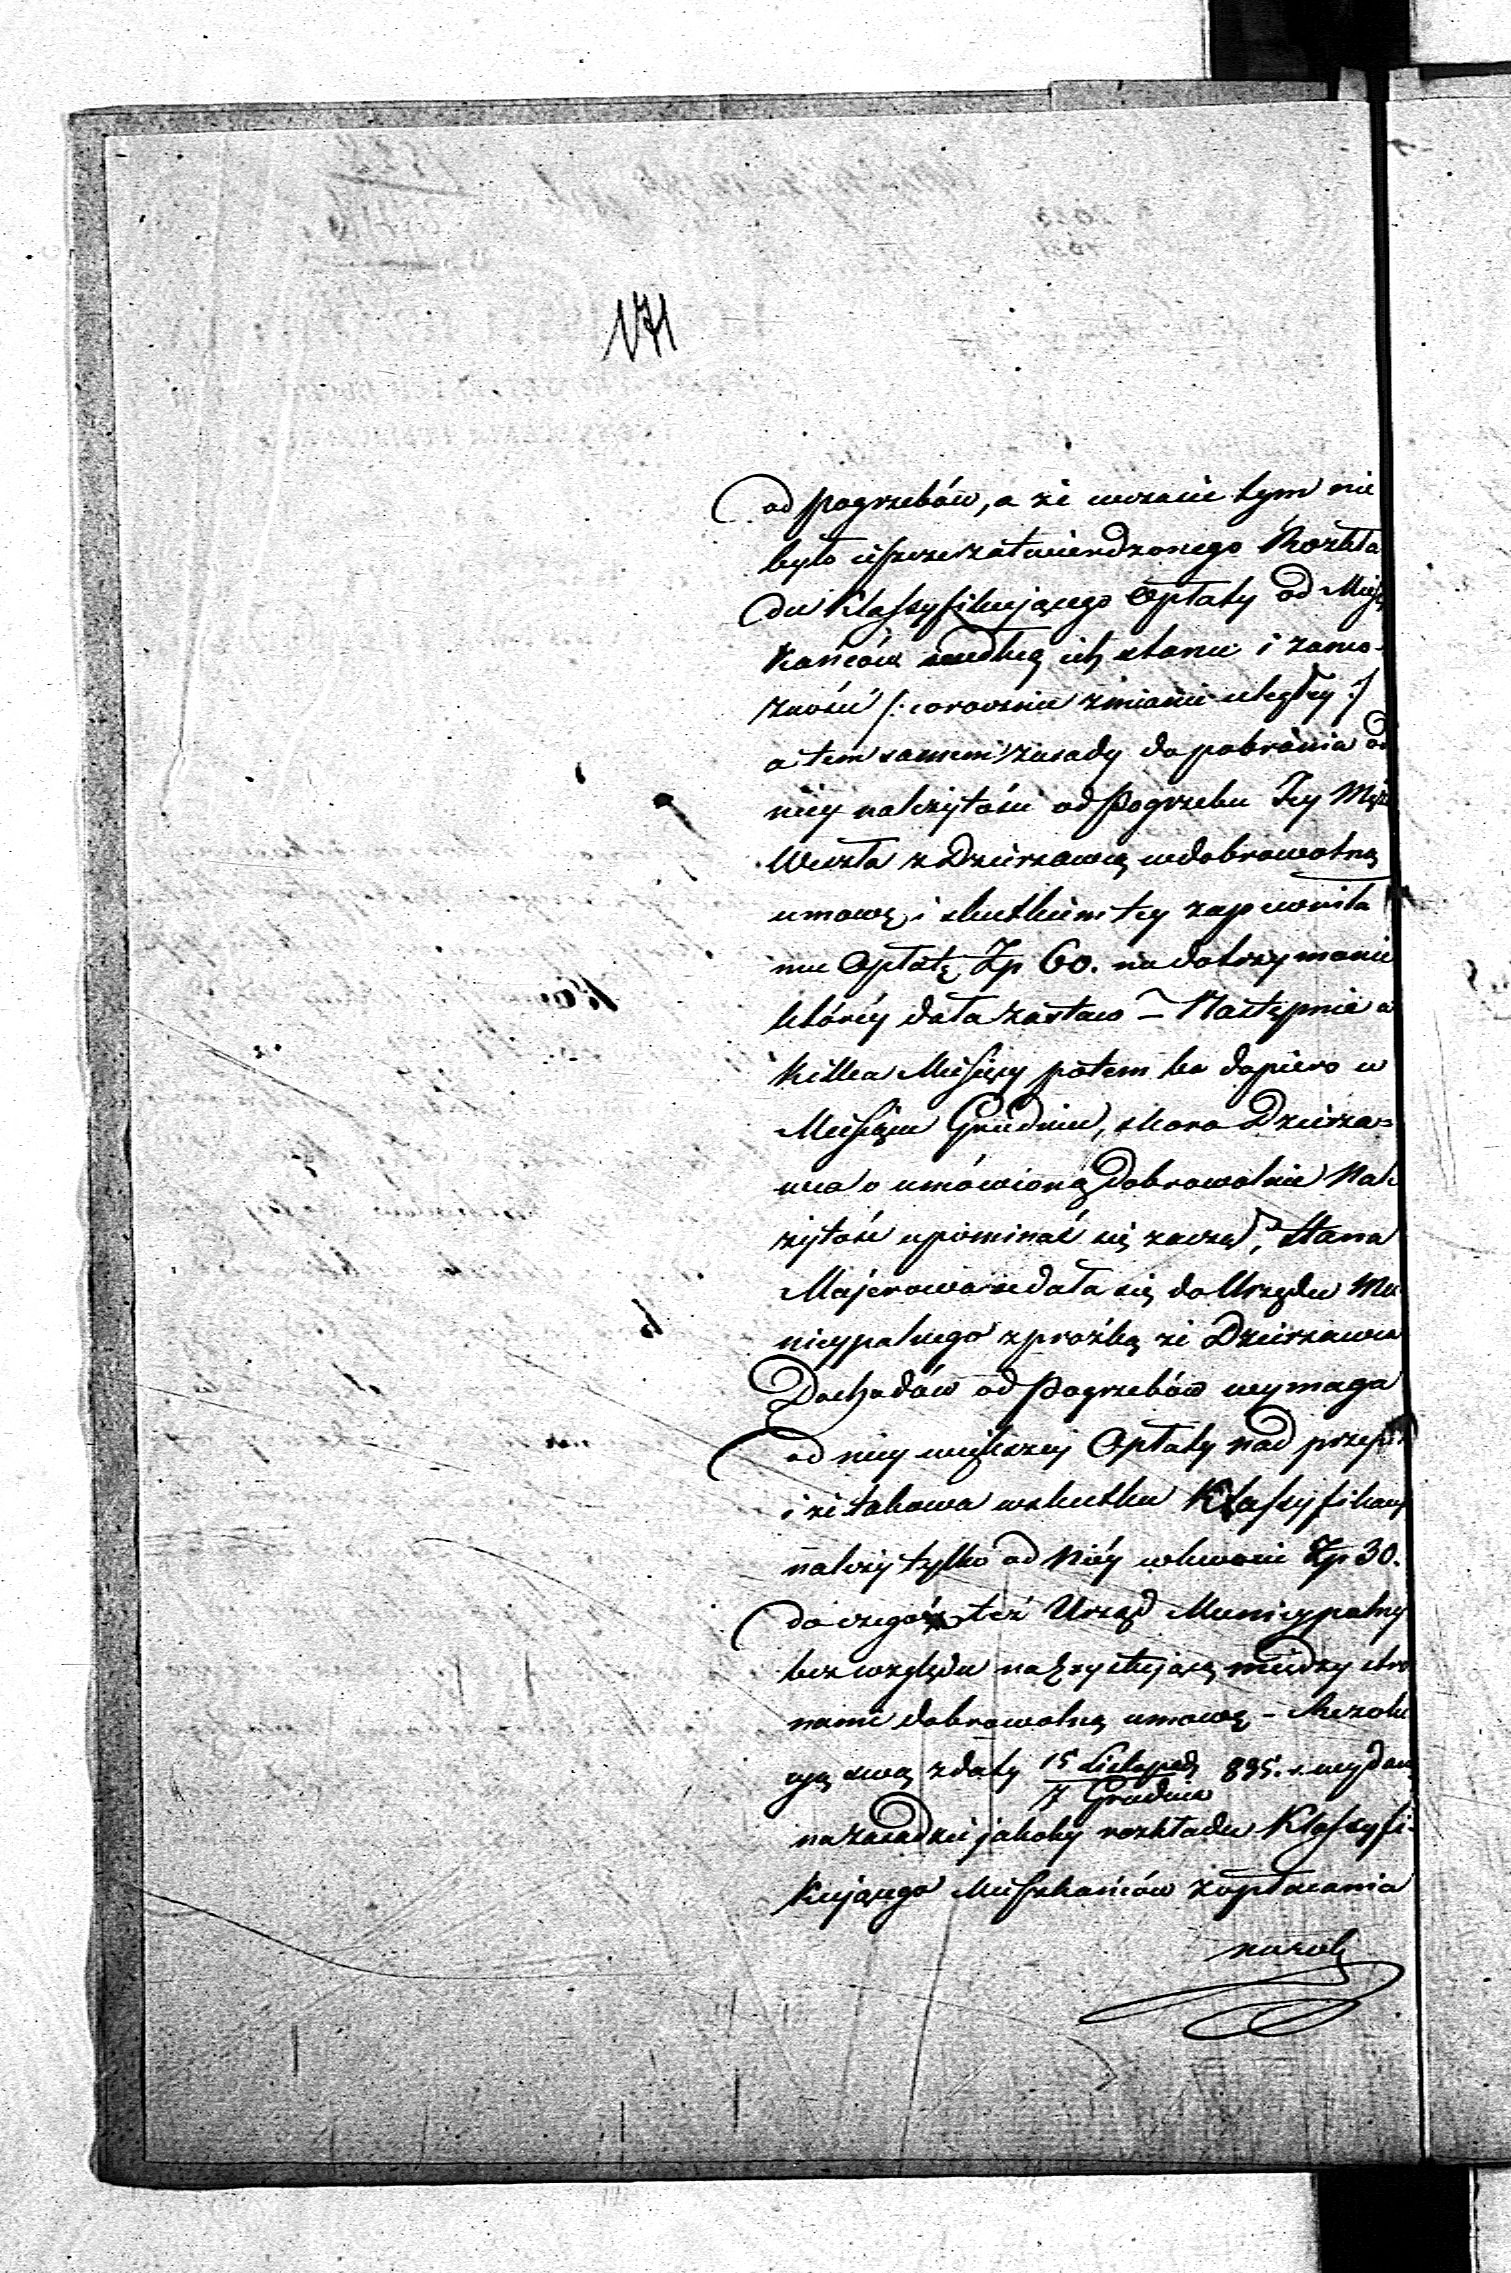 171
od pogrzebów, a że wczasie tym nie
było jeszcze zatwierdzonego Rozkła
du Klassyfikującego Opłaty od Miesz
kańców według ich stanu i zamo-
żności /: corocznie zmianie uległey :/
a tem samem zasady do pobrania od
niey należytości od Pogrzebu Jey Męża
Weszła z Dzierzawcą wdobrowolną
umowę i skutkiem tey zapewniła
mu Opłatę Zp 60. na dotrzymanie
któréy dała zastaw – Następnie w
kilka Miesięcy potem bo dopiero w
Miesiącu Grudniu, skoro Dzierza=
wca o umówioną dobrowolnie Nale
żytość upominać się zaczął, Stara
Majerowa udała się do Urzędu Mu
nicypalnego z prośbą że Dzierzawca
Dochodów od Pogrzebów wymaga
od niey większej Opłaty nad przepis
i że takowa wskutku Klassyfikacyi
należy tylko od Niéy wkwocie Zp 30.
do czego też Urząd Municypalny
bez względu na Exystującą między stro
nami dobrowolną umowę – Rezolu
cyą swą z daty 15 Listopad 835. r wydaną
7 Grudnia
na zasadzie jakoby rozkładu Klassyfi-
kującego Mieszkańców z opłacania